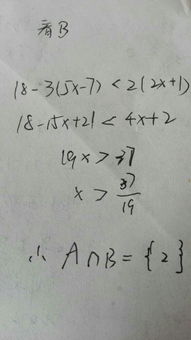 看B
18-3(5x-7)<2(2x+1)
18-15x+21<4x+2
19x>37
x>37/19
∴ A∩B={2}